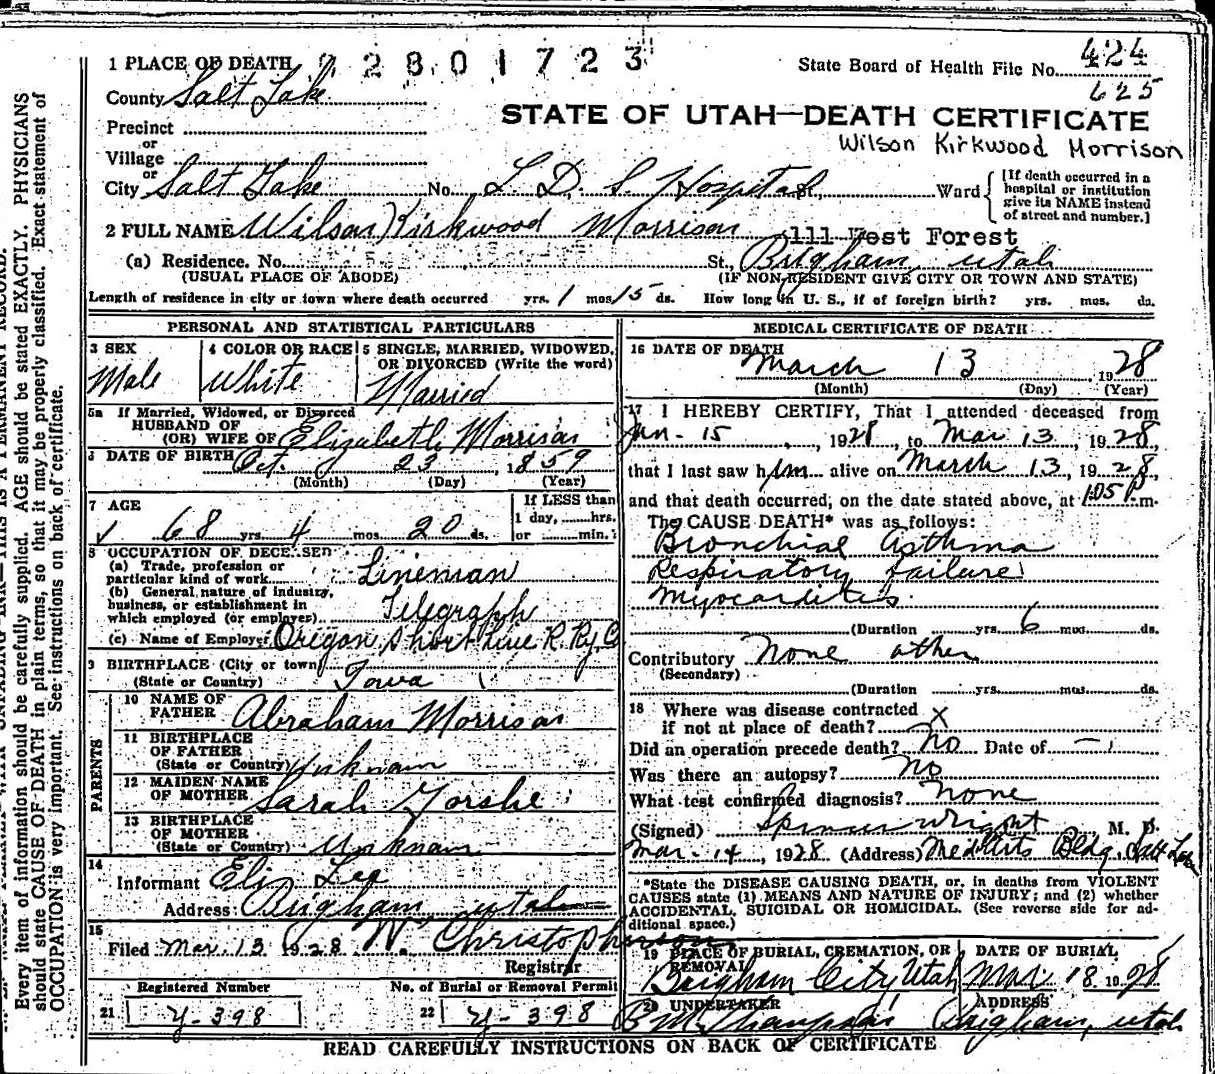 1 PLACE OF DEATH 2801723
State Board of Health File No. 424
625
County Salt Lake
STATE OF UTAH—DEATH CERTIFICATE
Precinct
Wilson Kirkwood Morrison
or
Village
or
City Salt Lake No. L. D. S. Hospital St., Ward
[If death occurred in a hospital or institution give its NAME instead of street and number.]
2 FULL NAME Wilson Kirkwood Morrison
111 West Forest
(a) Residence. No. St., Brigham, Utah
(USUAL PLACE OF ABODE) (IF NON-RESIDENT GIVE CITY OR TOWN AND STATE)
Length of residence in city or town where death occurred yrs. 1 mos. 15 ds. How long in U. S., if of foreign birth? yrs. mos. ds.
PERSONAL AND STATISTICAL PARTICULARS
3 SEX Male
4 COLOR OR RACE White
5 SINGLE, MARRIED, WIDOWED, OR DIVORCED (Write the word) Married
5a If Married, Widowed, or Divorced
HUSBAND OF
(OR) WIFE OF Elizabeth Morrison
DATE OF BIRTH Oct. 23, 1859
(Month) (Day) (Year)
7 AGE
68 yrs. 4 mos. 20 ds.
If LESS than
1 day, hrs.
or min.
8 OCCUPATION OF DECEASED
(a) Trade, profession or
particular kind of work Lineman
(b) General nature of industry,
business, or establishment in
which employed (or employer) Telegraph
(c) Name of Employer Oregon Short Line R. Ry. Co
9 BIRTHPLACE (City or town)
(State or Country) Iowa
PARENTS
10 NAME OF
FATHER Abraham Morrison
11 BIRTHPLACE
OF FATHER
(State or Country) Unknown
12 MAIDEN NAME
OF MOTHER Sarah
13 BIRTHPLACE
OF MOTHER
(State or Country) Unknown
14
Informant Eli Lee
Address: Brigham Utah
15
Filed Mar. 13 1928 W. Christopherson
Registrar
Registered Number No. of Burial or Removal Permit
21 Y-398 22 Y-398
MEDICAL CERTIFICATE OF DEATH
16 DATE OF DEATH
March 13, 1928
(Month) (Day) (Year)
17 I HEREBY CERTIFY, That I attended deceased from
Jan. 15, 1928, to Mar 13, 1928,
that I last saw him alive on March 13, 1928,
and that death occurred, on the date stated above, at 1:05 P.m.
The CAUSE DEATH* was as follows:
Bronchial asthma
Respiratory failure
Myocarditis
(Duration yrs. 6 mos. ds.
Contributory None other
(Secondary)
(Duration yrs. mos. ds.
18 Where was disease contracted
if not at place of death? X
Did an operation precede death? No Date of —
Was there an autopsy? No
What test confirmed diagnosis? None
(Signed) Spencer Wright M. D.
Mar. 14, 1928 (Address) Med Arts Bldg. Salt Lake
*State the DISEASE CAUSING DEATH, or, in deaths from VIOLENT
CAUSES state (1) MEANS AND NATURE OF INJURY; and (2) whether
ACCIDENTAL, SUICIDAL OR HOMICIDAL. (See reverse side for ad-
ditional space.)
19 PLACE OF BURIAL, CREMATION, OR
REMOVAL
Brigham City Utah
DATE OF BURIAL
Mar 18. 1928
20 UNDERTAKER ADDRESS
Brigham, Utah
READ CAREFULLY INSTRUCTIONS ON BACK OF CERTIFICATE
Every item of information should be carefully supplied. AGE should be stated EXACTLY. PHYSICIANS
should state CAUSE OF DEATH in plain terms, so that it may be properly classified. Exact statement of
OCCUPATION is very important. See instructions on back of certificate.